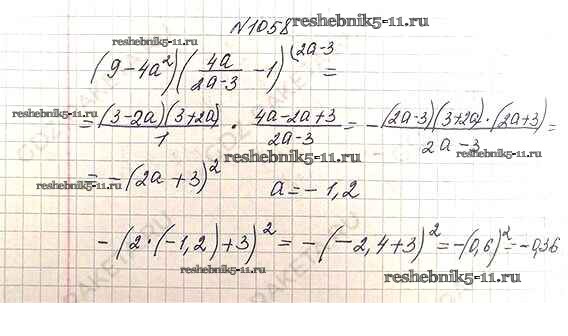 №1058 reshebnik5-11.ru
reshebnik5-11.ru
(9-4a²)(4a/(2a-3) -1)^(2a-3 =
reshebnik5-11.ru
= (3-2a)(3+2a)/1 · (4a-2a+3)/(2a-3) = -(2a-3)(3+2a)·(2a+3)/(2a-3) =
reshebnik5-11.ru reshebnik5-11.ru
reshebnik5-11.ru
= -(2a+3)² a=-1,2
reshebnik5-11.ru
-(2·(-1,2)+3)² = -(-2,4+3)² = -(0,6)² = -0,36
reshebnik5-11.ru
reshebnik5-11.ru